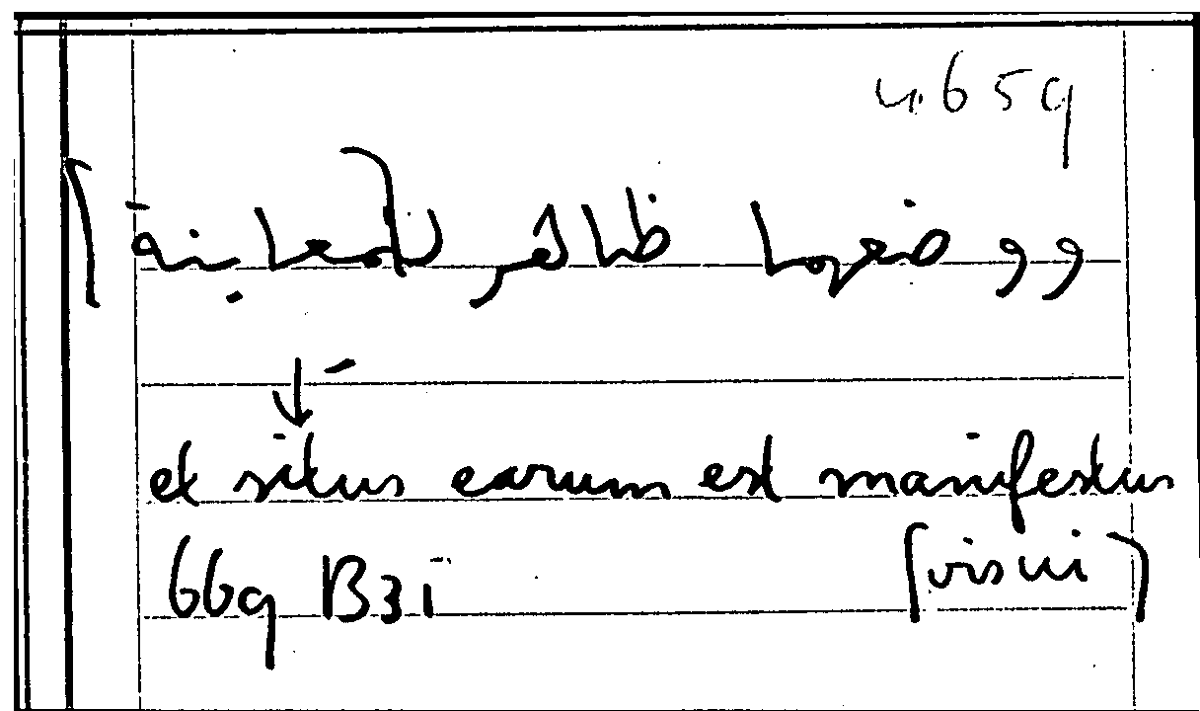 4.659
ووضعها ظاهر [للمعاينة]
et situs earum est manifestus
669 B31 [visui]